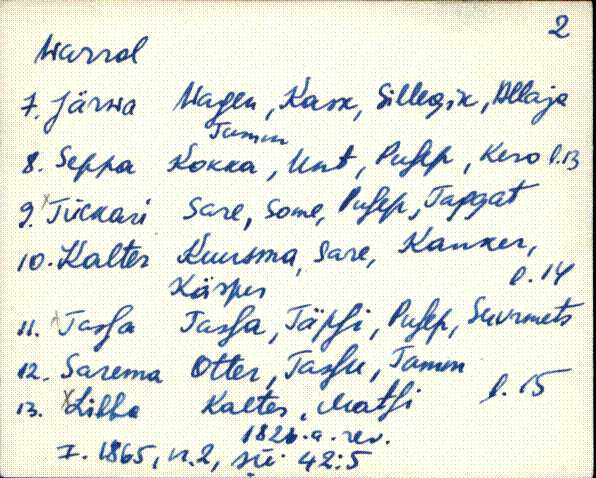 2
Warrol
7. Järwa Wagen, Kask, Sillegik, Allaja
Tamm
8. Seppa Kokka, Unt, Pusep, Kero l.13
9. Tückari Sare, Some, Pusep, Tapgat
10. Kalter Kuursma, Sare, Kanker,
Käsper l.14
11. Tassa Tassa, Täpsi, Pusep, Suurmets
12. Sarema Otter, Tassu, Tamm
13. Libba Kalter, Matsi l.15
1826.a. rev.
F. 1865, n.2, sü 42:5